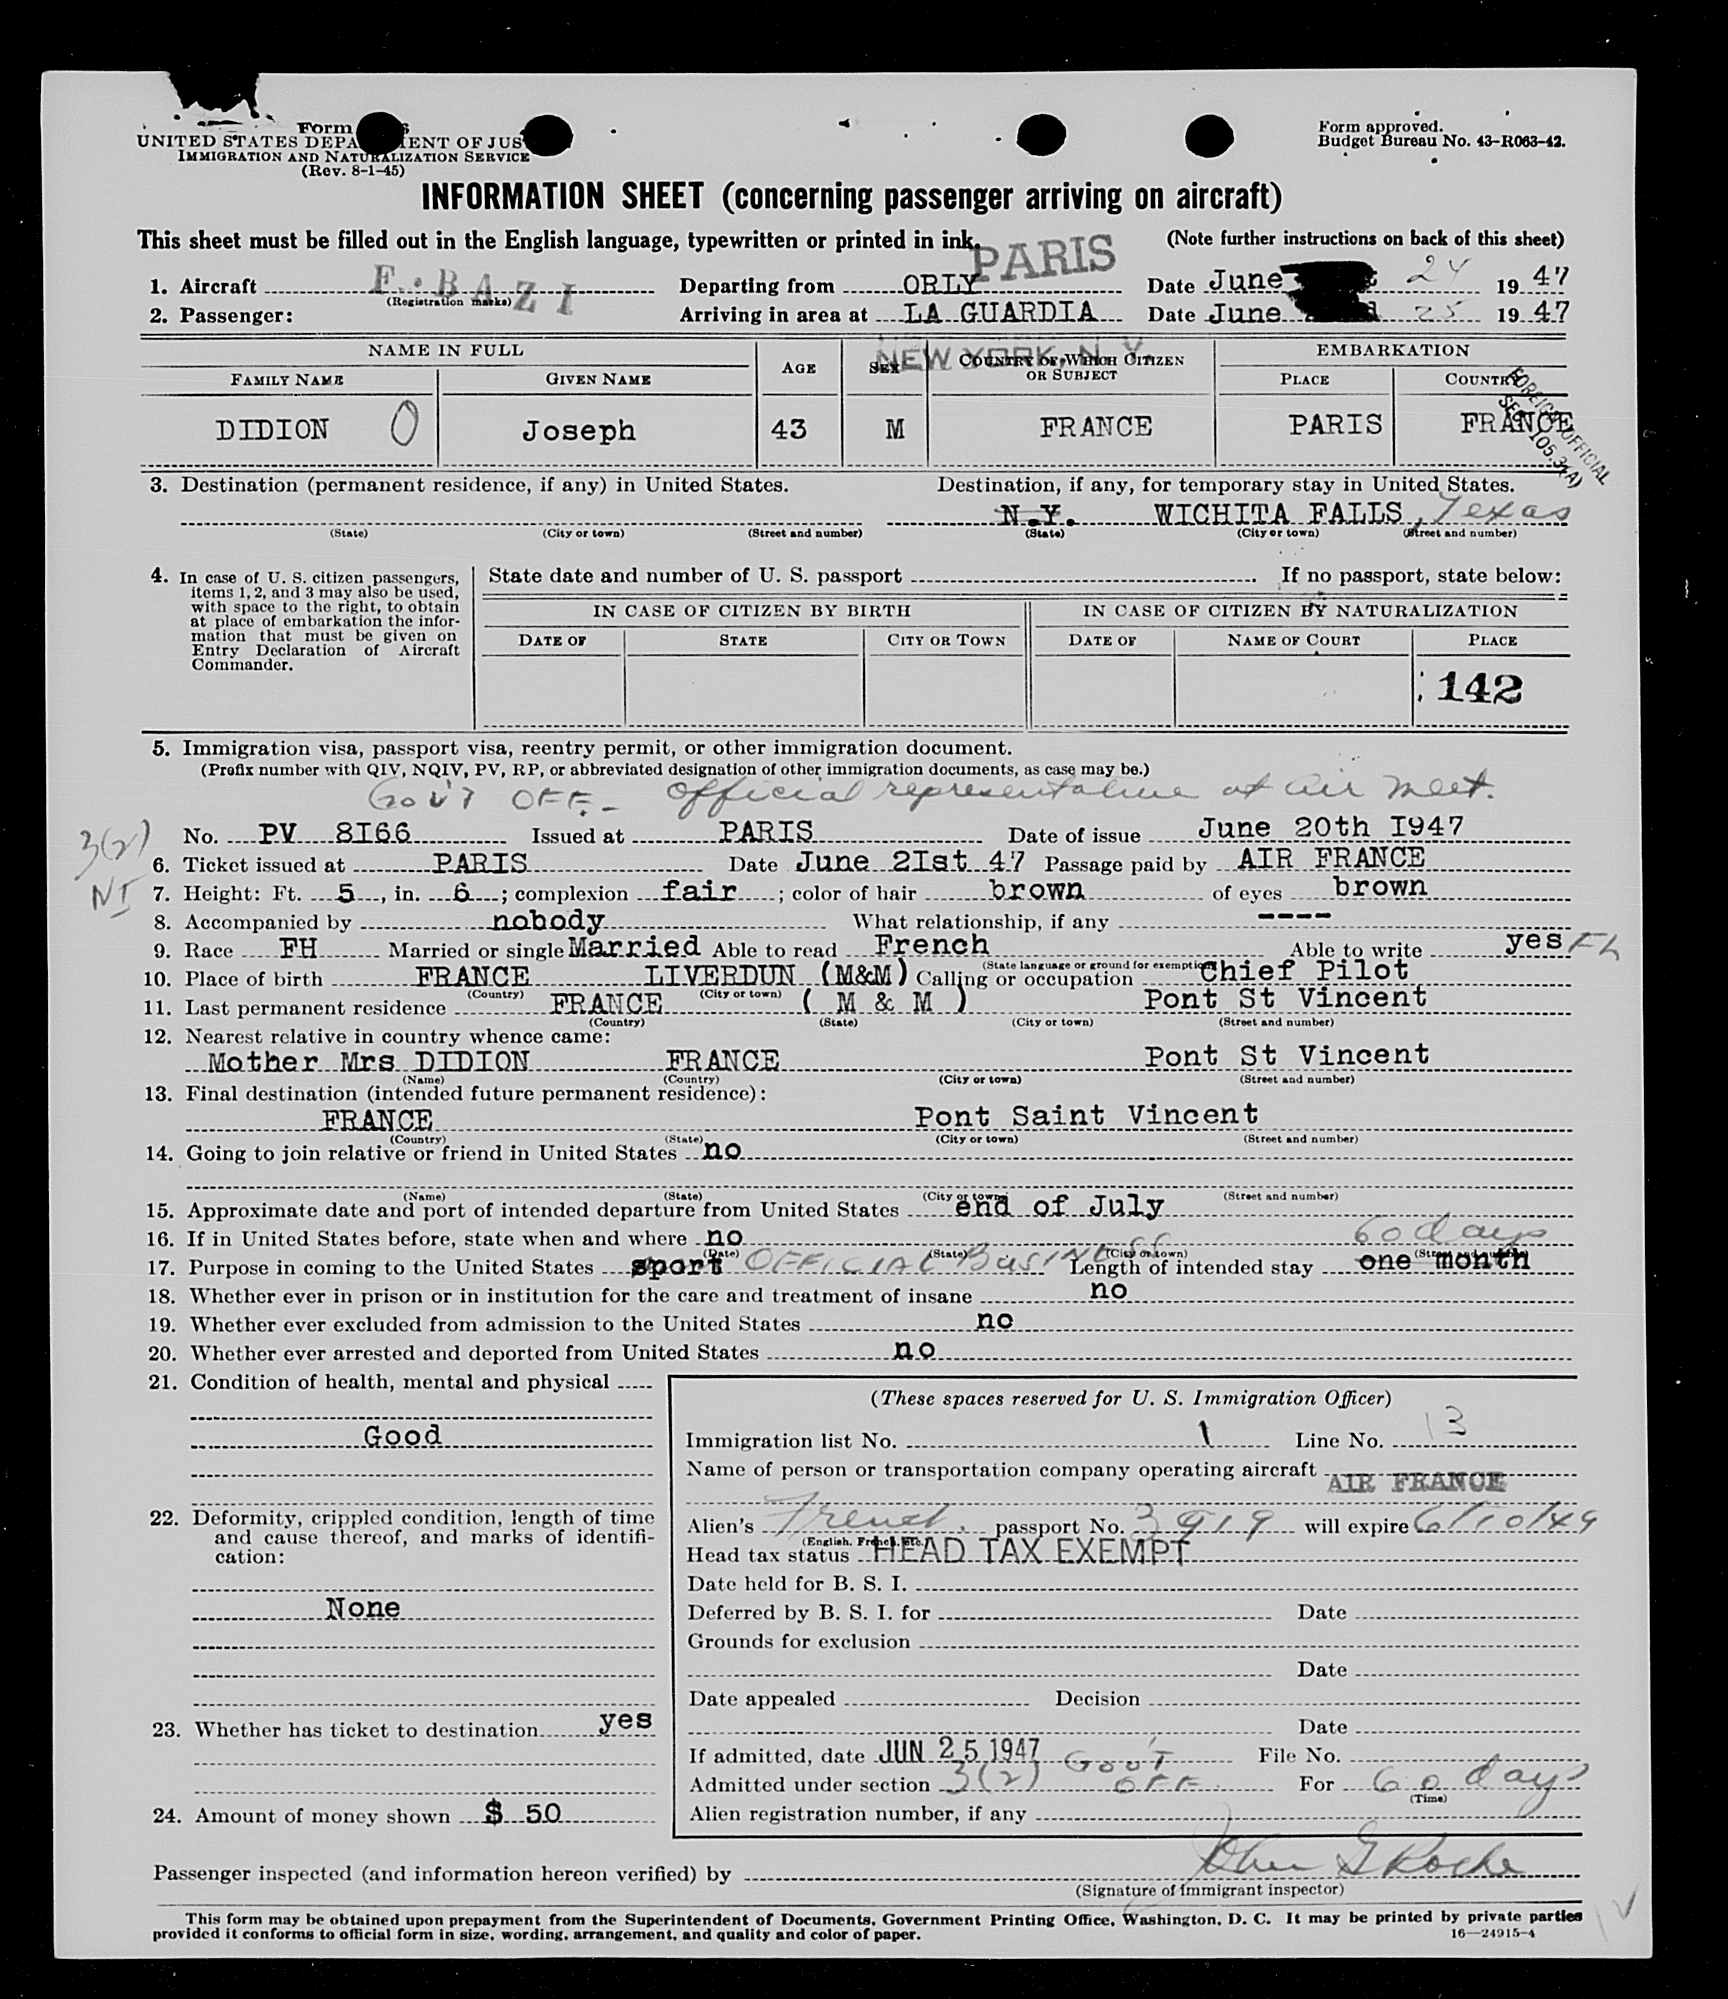 Form
UNITED STATES DEPA ENT OF JUS
IMMIGRATION AND NATURALIZATION SERVICE
(Rev. 8-1-45)
Form approved.
Budget Bureau No. 43-R063-42.
INFORMATION SHEET (concerning passenger arriving on aircraft)
This sheet must be filled out in the English language, typewritten or printed in ink.
(Note further instructions on back of this sheet)
PARIS
1. Aircraft F.BAZI Departing from ORLY Date June 24 1947
(Registration marks)
2. Passenger: Arriving in area at LA GUARDIA Date June 25 1947
NEW YORK, N. Y.
NAME IN FULL AGE SEX COUNTRY OF WHICH CITIZEN OR SUBJECT EMBARKATION
FAMILY NAME GIVEN NAME PLACE COUNTRY
DIDION O Joseph 43 M FRANCE PARIS FRANCE
FOREIGN OFFICIAL
SEC. 105.3(A)
3. Destination (permanent residence, if any) in United States. Destination, if any, for temporary stay in United States.
N.Y. WICHITA FALLS, Texas
(State) (City or town) (Street and number) (State) (City or town) (Street and number)
4. In case of U. S. citizen passengers, items 1, 2, and 3 may also be used, with space to the right, to obtain at place of embarkation the information that must be given on Entry Declaration of Aircraft Commander.
State date and number of U. S. passport If no passport, state below:
IN CASE OF CITIZEN BY BIRTH IN CASE OF CITIZEN BY NATURALIZATION
DATE OF STATE CITY OR TOWN DATE OF NAME OF COURT PLACE
142
5. Immigration visa, passport visa, reentry permit, or other immigration document.
(Prefix number with QIV, NQIV, PV, RP, or abbreviated designation of other immigration documents, as case may be.)
Gov't OFF. - Official representative at air meet.
3(2)
NI
No. PV 8I66 Issued at PARIS Date of issue June 20th I947
6. Ticket issued at PARIS Date June 2Ist 47 Passage paid by AIR FRANCE
7. Height: Ft. 5, in. 6; complexion fair; color of hair brown of eyes brown
8. Accompanied by nobody What relationship, if any ----
9. Race FH Married or single Married Able to read French Able to write yes Fh
(State language or ground for exemption)
10. Place of birth FRANCE LIVERDUN (M&M) Calling or occupation Chief Pilot
(Country) (City or town)
11. Last permanent residence FRANCE ( M & M ) Pont St Vincent
(Country) (State) (City or town) (Street and number)
12. Nearest relative in country whence came:
Mother Mrs DIDION FRANCE Pont St Vincent
(Name) (Country) (City or town) (Street and number)
13. Final destination (intended future permanent residence):
FRANCE Pont Saint Vincent
(Country) (State) (City or town) (Street and number)
14. Going to join relative or friend in United States no
(Name) (State) (City or town) (Street and number)
15. Approximate date and port of intended departure from United States end of July
16. If in United States before, state when and where no
(Date) (State) (City or town) (Street and number)
60 days
17. Purpose in coming to the United States sport OFFICIAL BUSINESS Length of intended stay one month
18. Whether ever in prison or in institution for the care and treatment of insane no
19. Whether ever excluded from admission to the United States no
20. Whether ever arrested and deported from United States no
21. Condition of health, mental and physical
Good
22. Deformity, crippled condition, length of time and cause thereof, and marks of identification:
None
23. Whether has ticket to destination yes
24. Amount of money shown $ 50
(These spaces reserved for U. S. Immigration Officer)
Immigration list No. 1 Line No. 13
Name of person or transportation company operating aircraft AIR FRANCE
Alien's French passport No. 3919 will expire 6/10/49
(English, French, etc.)
Head tax status HEAD TAX EXEMPT
Date held for B. S. I.
Deferred by B. S. I. for Date
Grounds for exclusion
Date
Date appealed Decision
Date
If admitted, date JUN 25 1947 File No.
Admitted under section 3(2) GOV'T OFF. For 60 days
(Time)
Alien registration number, if any
Passenger inspected (and information hereon verified) by John G Roche
(Signature of immigrant inspector)
This form may be obtained upon prepayment from the Superintendent of Documents, Government Printing Office, Washington, D. C. It may be printed by private parties
provided it conforms to official form in size, wording, arrangement, and quality and color of paper.
16—24915-4